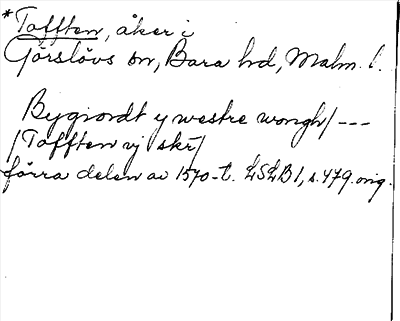 *Tofften, åker i
Görslövs sn, Bara hd, Malm. l.
Bygiordt y westre wongh/ ---
/Tofften vj skr/
förra delen av 1570-t. LSLB 1, s. 479. orig.